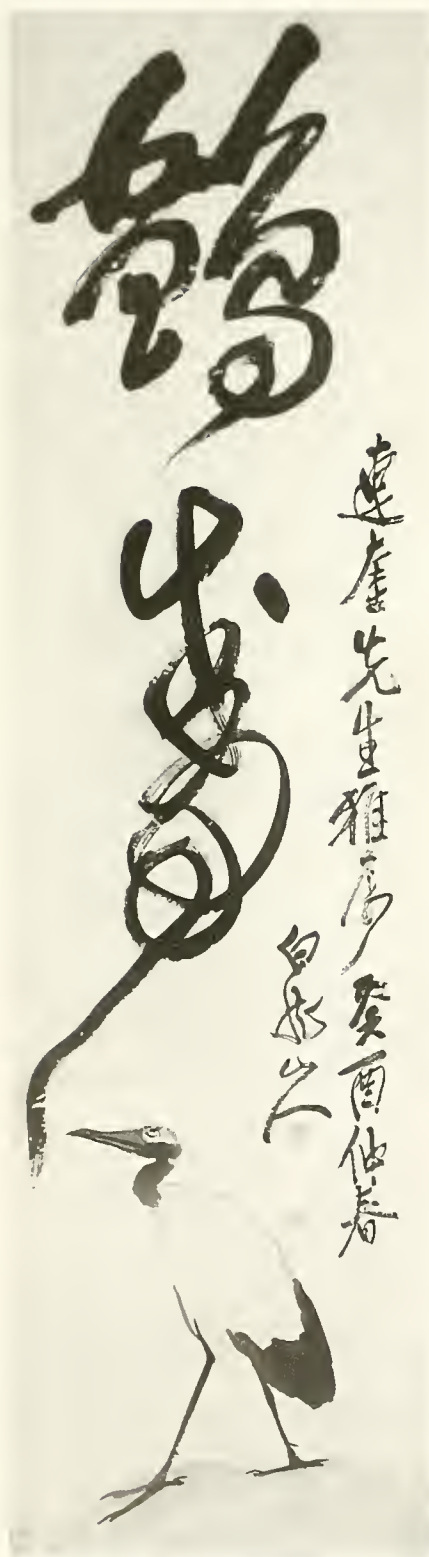 鶴壽
達奎先生雅屬癸酉仲春
白龍山人